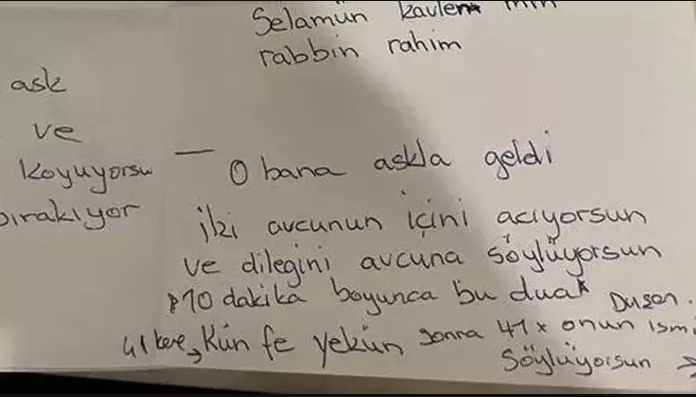 Selamün kavlen min
rabbin rahim
ask
ve
koyuyorsu
bırakıyor
— O bana askla geldi
iki avcunun içini acıyorsun
ve dilegini avcuna söylüyorsun
10 dakika boyunca bu dua
41 kere, Kün fe yekün sonra 41x onun ismi
söylüyorsun →